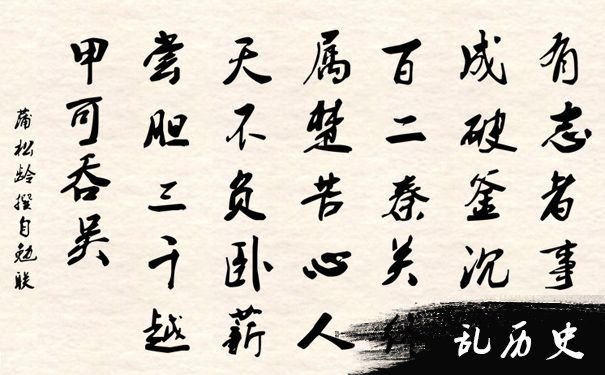 有志者事
成破釜沉
百二秦关
属楚苦心人
天不负卧薪
尝胆三千越
甲可吞吴
蒲松龄撰自勉联
乱历史